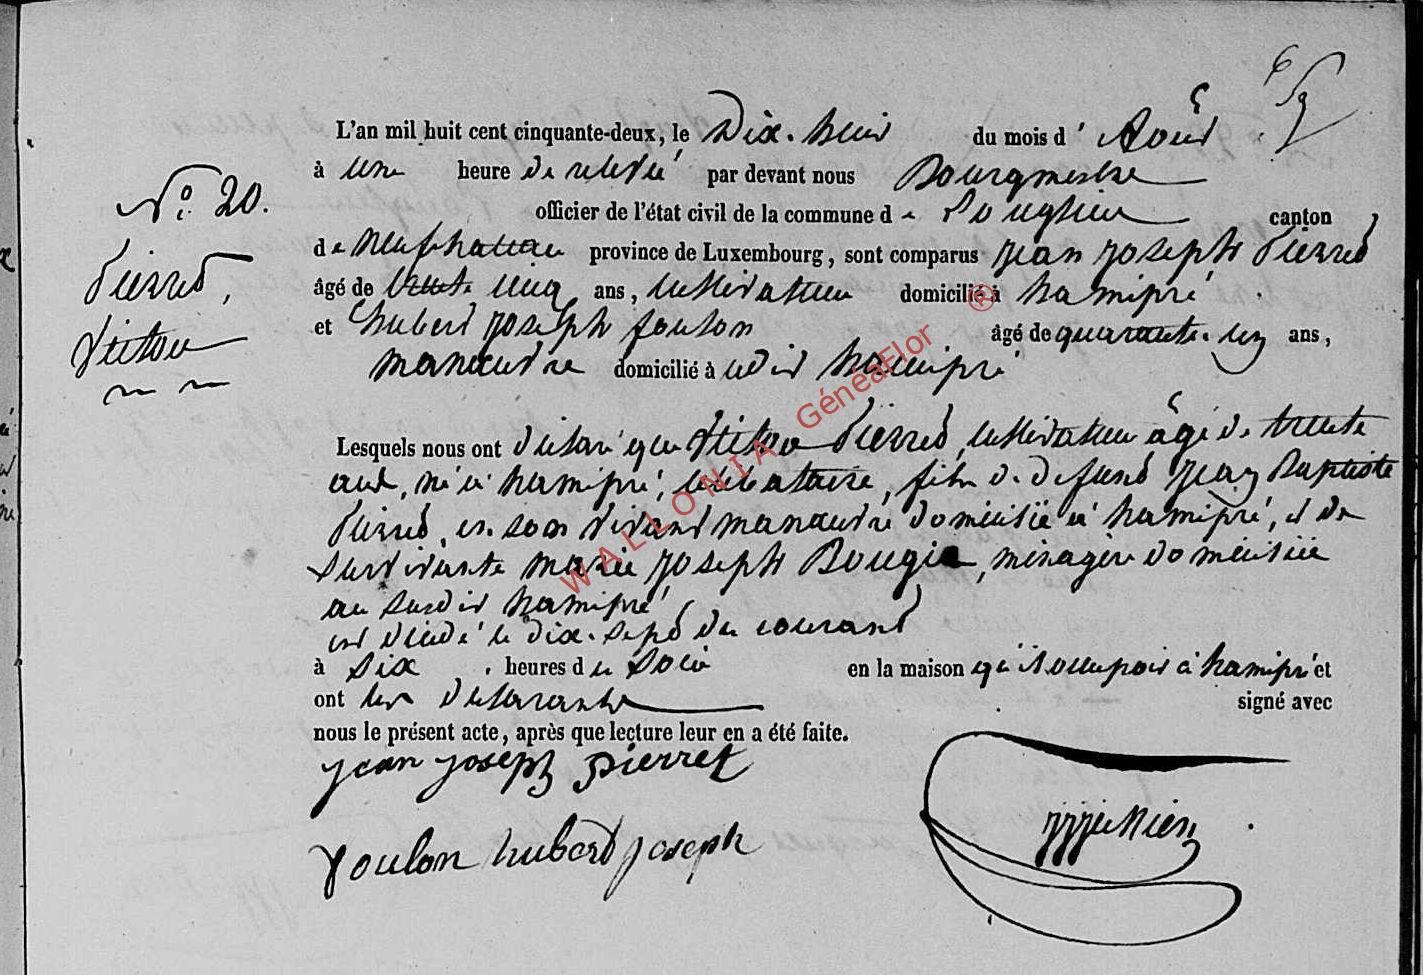 L'an mil huit cent cinquante-deux, le Dix-huit du mois d' Août
à une heure de relevée par devant nous Bourgmestre
N°. 20. officier de l'état civil de la commune de Longlier canton
de Neufchateau province de Luxembourg, sont comparus Jean Joseph Pierret
Pierret, âgé de trente cinq ans, cultivateur domicilié à hamipré
Victor et hubert Joseph foulon âgé de quarante-six ans,
manœuvre domicilié à udit hamipré
Lesquels nous ont déclaré que Victor Pierret, cultivateur âgé de trente
ans, né à hamipré, célibataire, fils de défunt Jean Baptiste
Pierret, en son vivant manœuvre domicilié à hamipré, et de
survivante marie Joseph Bougie, ménagère domiciliée
au susdit hamipré
est décédé le dix-sept du courant
à Six heures du Soir en la maison qu'il occupoit à hamipré et
ont les déclarants signé avec
nous le présent acte, après que lecture leur en a été faite.
jean joseph pierret
foulon hubert joseph
WALLONIA GénéaFlor ®